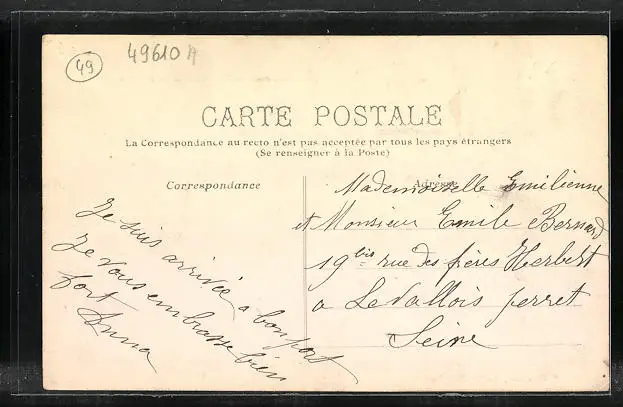 49
49610 A
CARTE POSTALE
La Correspondance au recto n'est pas acceptée par tous les pays étrangers
(Se renseigner à la Poste)
Correspondance
Je suis arrivée a bon port
Je vous embrasse bien
fort
Anna
Adresse
Mademoiselle Emilienne
et Monsieur Emile Bernard
19 bis rue des frères Herbert
a Levallois perret
Seine